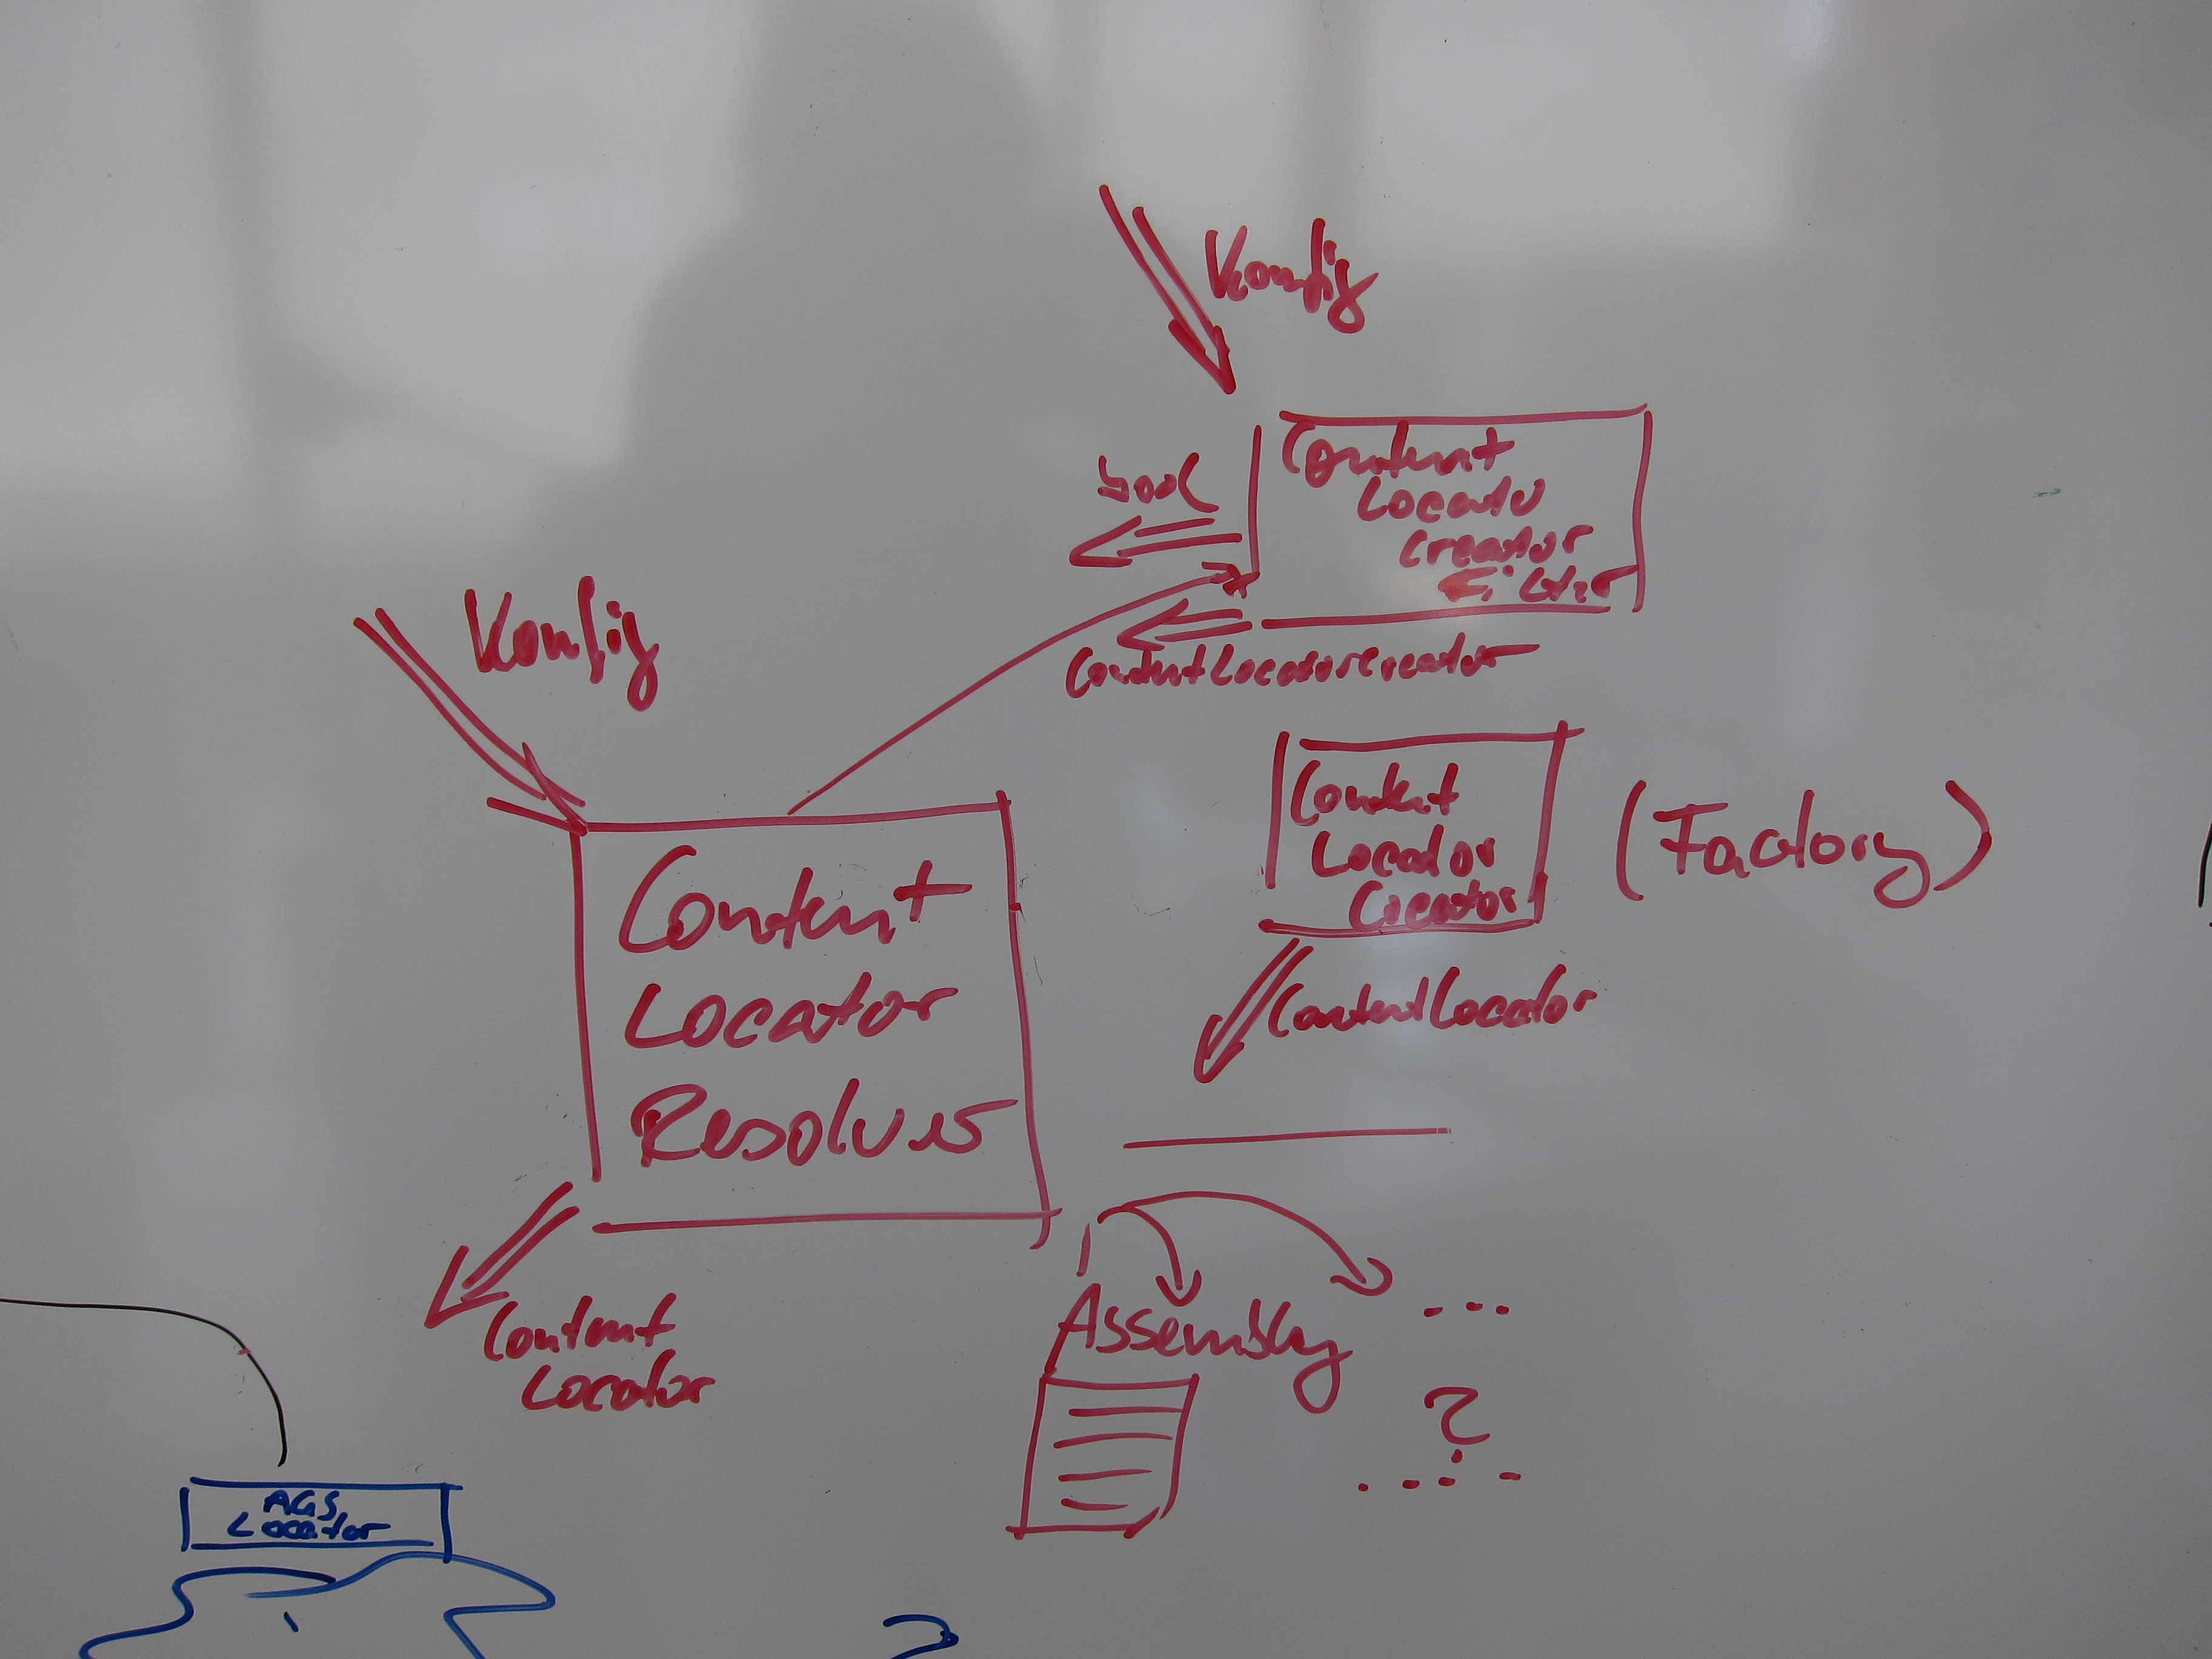 Konfig
bool
Content
Locator
Creator
Filter
ContentLocatorCreator
Konfig
Content
Locator
Creator
(Factory)
ContentLocator
Content
Locator
Resolver
Content
Locator
Assembly
...
?
AGS
Locator